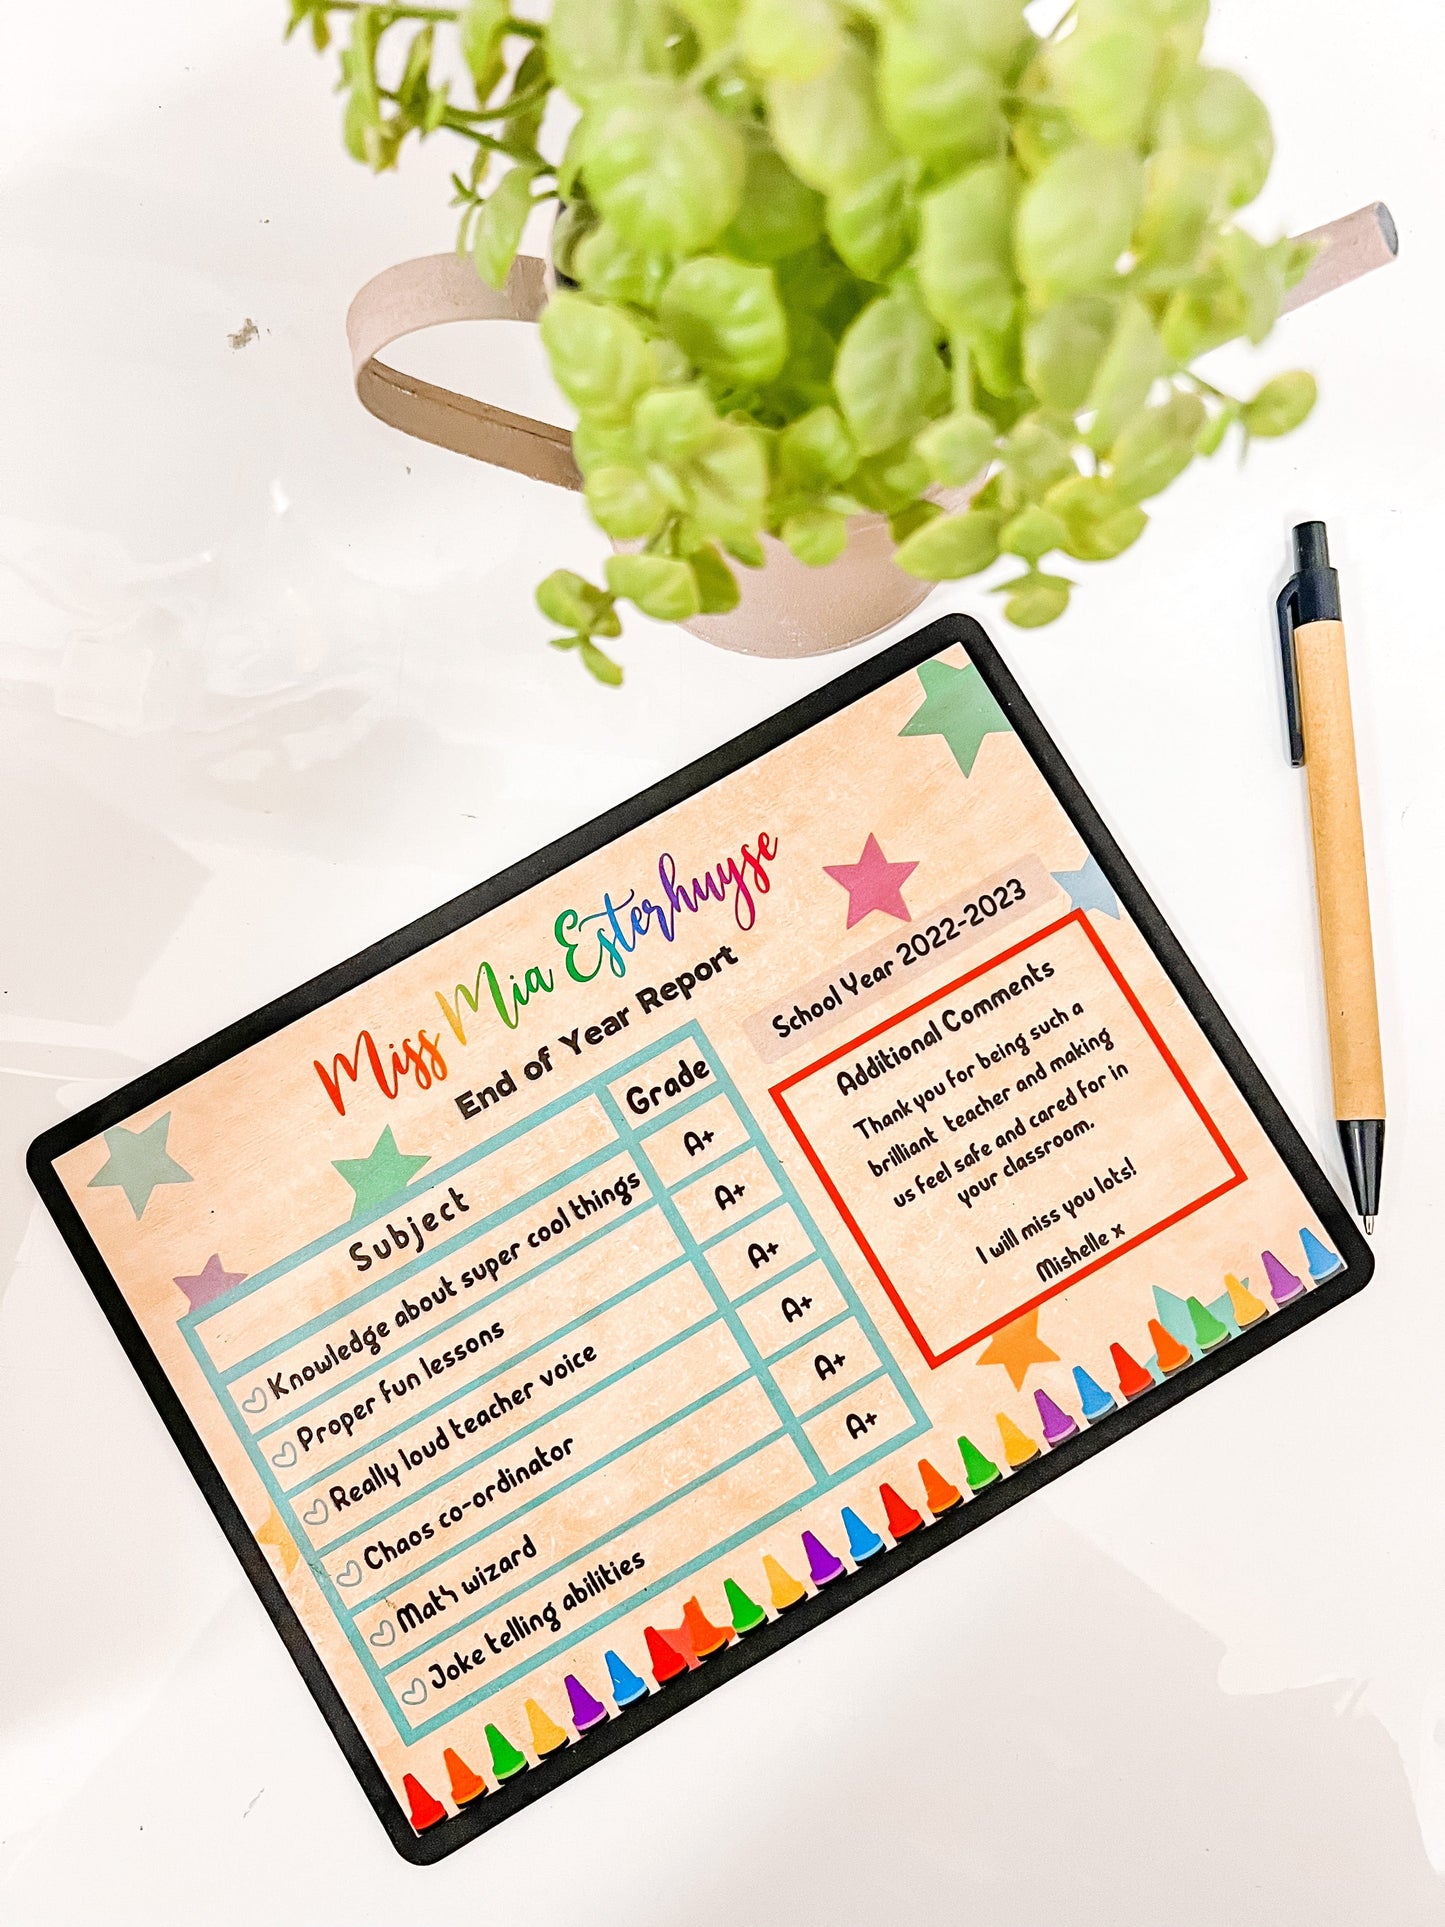 Miss Mia Esterhuyse
End of Year Report
School Year 2022-2023
Subject Grade
Knowledge about super cool things A+
Proper fun lessons A+
Really loud teacher voice A+
Chaos co-ordinator A+
Math wizard A+
Joke telling abilities A+
Additional Comments
Thank you for being such a
brilliant teacher and making
us feel safe and cared for in
your classroom.
I will miss you lots!
Mishelle x